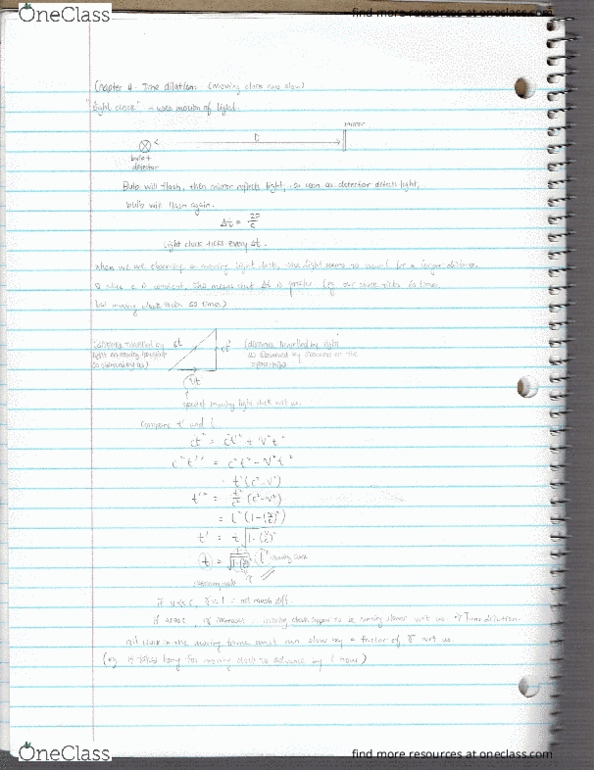 OneClass
find more resources at oneclass.com
Chapter 4 - Time dilation: (moving clock runs slow)
"Light clock" - uses motion of light.
mirror
D
bulb +
detector
Bulb will flash, then mirror reflects light, as soon as detector detects light,
bulb will flash again.
Δt = 2D/c
Light clock ticks every Δt.
when we are observing a moving light clock, the light seems to travel for a longer distance.
c is constant, this means that Δt is greater (eg our clock ticks 60 times
but moving clock ticks 50 times)
(distance travelled by ct ct' (distance travelled by light
light on moving
as observed by us) as observed by in the
vt
speed of moving light clock wrt us.
Compare t' and t
ct² = c²t'² + v²t²
c²t'² = c²t² - v²t²
t²(c²-v²)
t'² = t²/c² (c²-v²)
= t² (1-(v/c)²)
t' = t √1-(v/c)²
t = 1/√1-(v/c)² t' moving clock
γ
if v<<c, γ≈1 = not much diff.
if increases = moving clock appear to be running slower wrt us. Time dilation.
clock in the moving frame must run slow by a factor of γ wrt us.
(eg it takes long for moving clock to advance by 1 hour)
OneClass
find more resources at oneclass.com